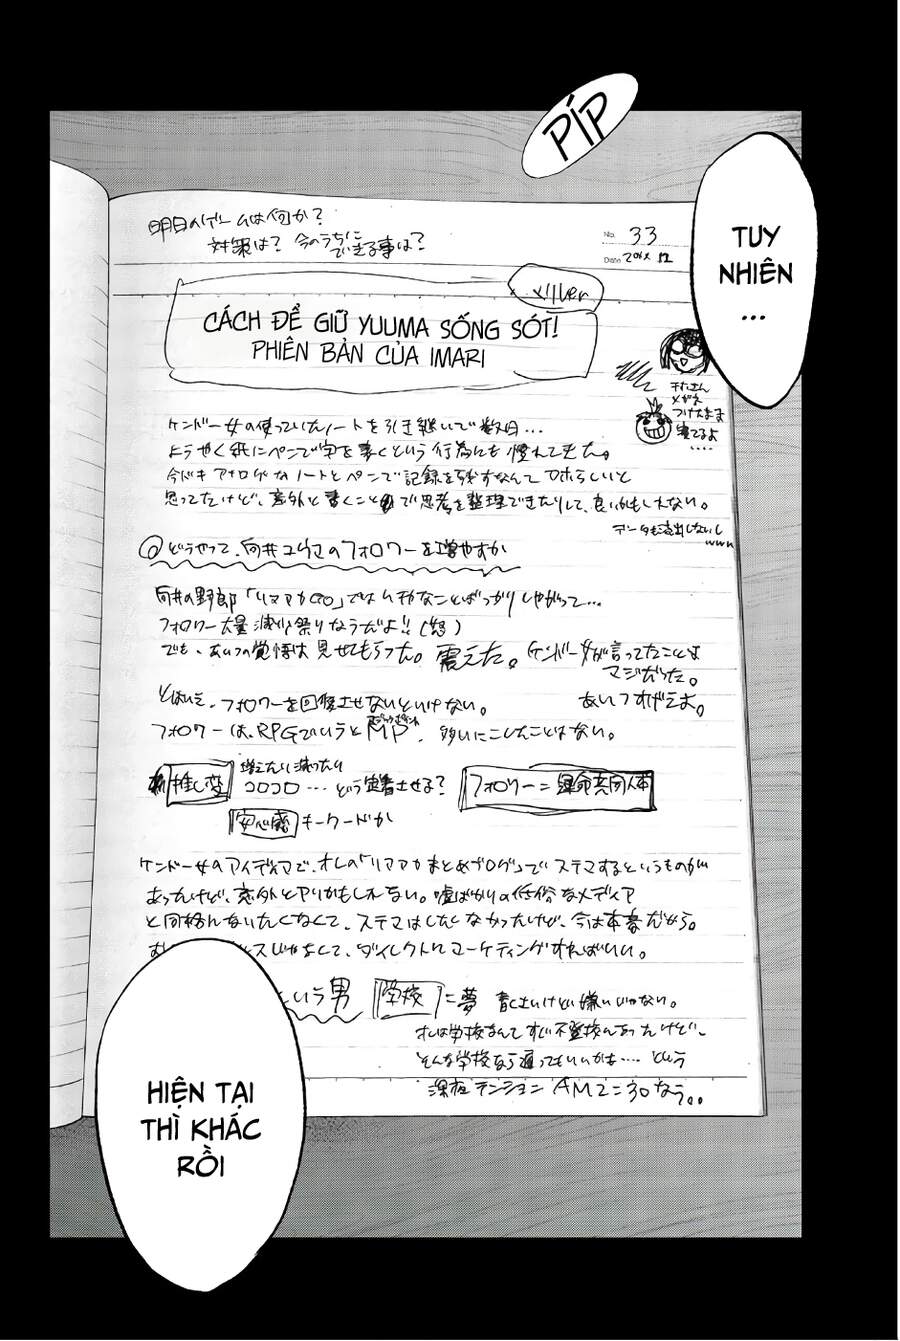 PÍP
TUY
NHIÊN
...
明日のゲームは何か?
対策は? 今のうちに
できる事は?
No. 33
Date
CÁCH ĐỂ GIỮ YUUMA SỐNG SÓT!
PHIÊN BẢN CỦA IMARI
メガネ
つけたまま
寝てるよ
....
ケンドー女の使っていたノートを引き継いで数日...
ようやく紙にペンで字を書くという行為にも慣れてきた。
今どきアナログなノートとペンで記録を残すなんてアホらしいと
思ってたけど、意外と書くことで思考を整理できたりして、良いかもしれない。
データも流出しないし
www
◎どうやって、向井ユウマのフォロワーを増やすか
向井の野郎「リアアカGO」ではムチャなことばっかりしやがって...
フォロワー大量減少祭りなうだよ!!(怒)
でも、あいつの覚悟は見せてもらった。震えた。ケンドー女が言ってたことは
マジだった。
あいつすげえよ。
とはいえ、フォロワーを回復させないといけない。
フォロワーは、RPGでいうとMP、多いにこしたことはない。
推し変
増えたり減ったり
コロコロ...どう定着させる?
フォロワー=運命共同体
安心感 キーワードか
ケンドー女のアイディアで、オレの「リアアカまとめブログ」でステマするというものが
あったけど、意外とアリかもしれない。嘘ばかりの低俗なメディア
と同格になりたくなくて、ステマはしたくなかったけど、今は本音だから。
スじゃなくて、ダイレクトにマーケティングすればいい。
という男 学校=夢 青くさいけど嫌いじゃない。
オレは学校なんてすぐ不登校になったけど、
そんな学校なら通ってもいいかな....という
深夜テンション AM2:30なう。。
HIỆN TẠI
THÌ KHÁC
RỒI